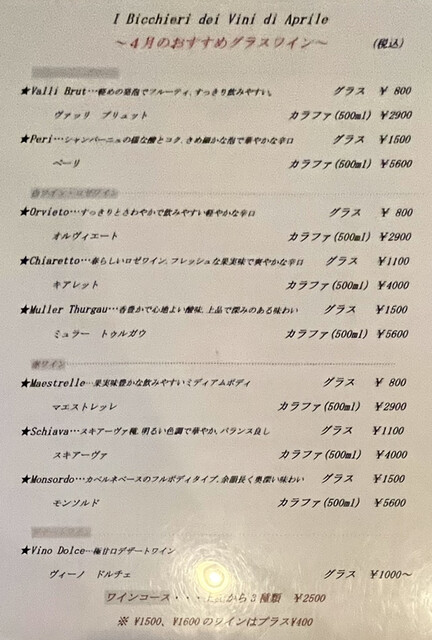 I Bicchieri dei Vini di Aprile
～4月のおすすめグラスワイン～ (税込)
★Valli Brut…軽めの発泡でフルーティ、すっきり飲みやすい。 グラス ￥ 800
ヴァッリ ブリュット カラファ(500ml) ￥2900
★Peri…シャンパーニュの様な酸とコク、きめ細かな泡で華やかな辛口 グラス ￥1500
ペーリ カラファ(500ml) ￥5600
白ワイン・ロゼワイン
★Orvieto…すっきりとさわやかで飲みやすい軽やかな辛口 グラス ￥ 800
オルヴィエート カラファ(500ml) ￥2900
★Chiaretto…春らしいロゼワイン、フレッシュな果実味で爽やかな辛口 グラス ￥1100
キアレット カラファ(500ml) ￥4000
★Muller Thurgau…香豊かで心地よい酸味、上品で深みのある味わい グラス ￥1500
ミュラー トゥルガウ カラファ(500ml) ￥5600
赤ワイン
★Maestrelle…果実味豊かな飲みやすいミディアムボディ グラス ￥ 800
マエストレッレ カラファ(500ml) ￥2900
★Schiava…スキアーヴァ種、明るい色調で華やか、バランス良し グラス ￥1100
スキアーヴァ カラファ(500ml) ￥4000
★Monsordo…カベルネベースのフルボディタイプ、余韻長く奥深い味わい グラス ￥1500
モンソルド カラファ(500ml) ￥5600
★Vino Dolce…極甘口デザートワイン
ヴィーノ ドルチェ グラス ￥1000～
ワインコース・・・上記から3種類 ￥2500
※ ￥1500、￥1600のワインはプラス￥400